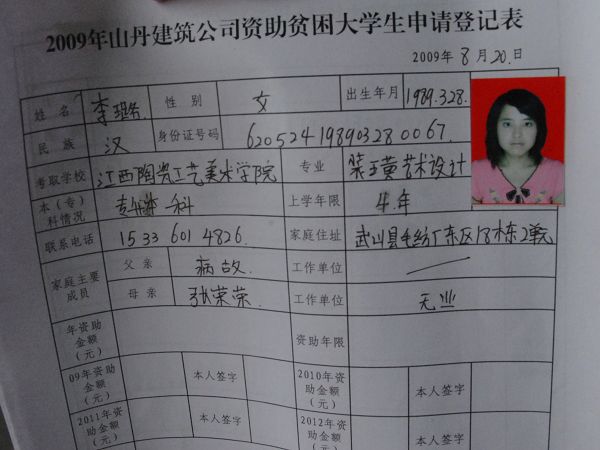 2009年山丹建筑公司资助贫困大学生申请登记表
2009年 8 月 20 日
姓 名 李璐 性 别 女 出生年月 1989.3.28.
民 族 汉 身份证号码 620524198903280067.
考取学校 江西陶瓷工艺美术学院 专业 装璜艺术设计
本（专）科情况 科 上学年限 4.年
联系电话 15336014826. 家庭住址 武山县毛纺厂东区18栋2单元
家庭主要成员 父 亲 病故. 工作单位
母 亲 张荣荣 工作单位 无业
年资助金额（元） 资助年限
09年资助金额（元） 本人签字 2010年资助金额（元） 本人签字
2011年资助金额 本人签字 2012年资助金额（元） 本人签字